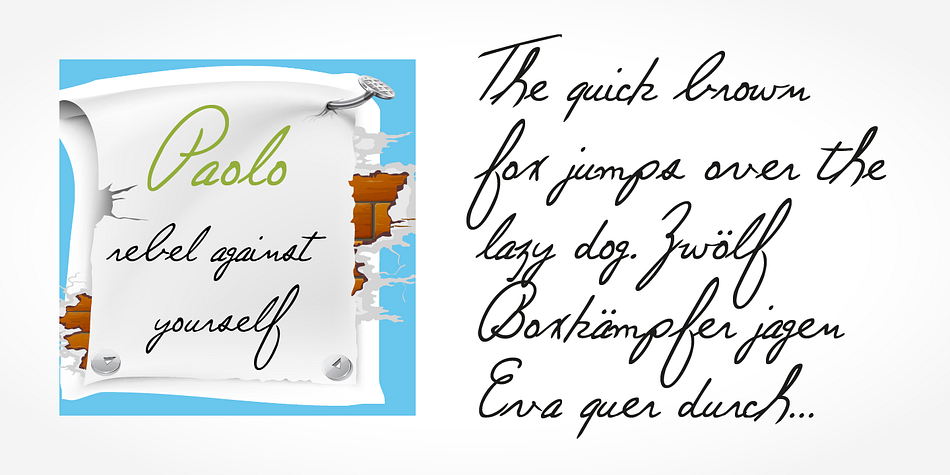 Paolo
rebel against
yourself
The quick brown
fox jumps over the
lazy dog. Zwölf
Boxkämpfer jagen
Eva quer durch...